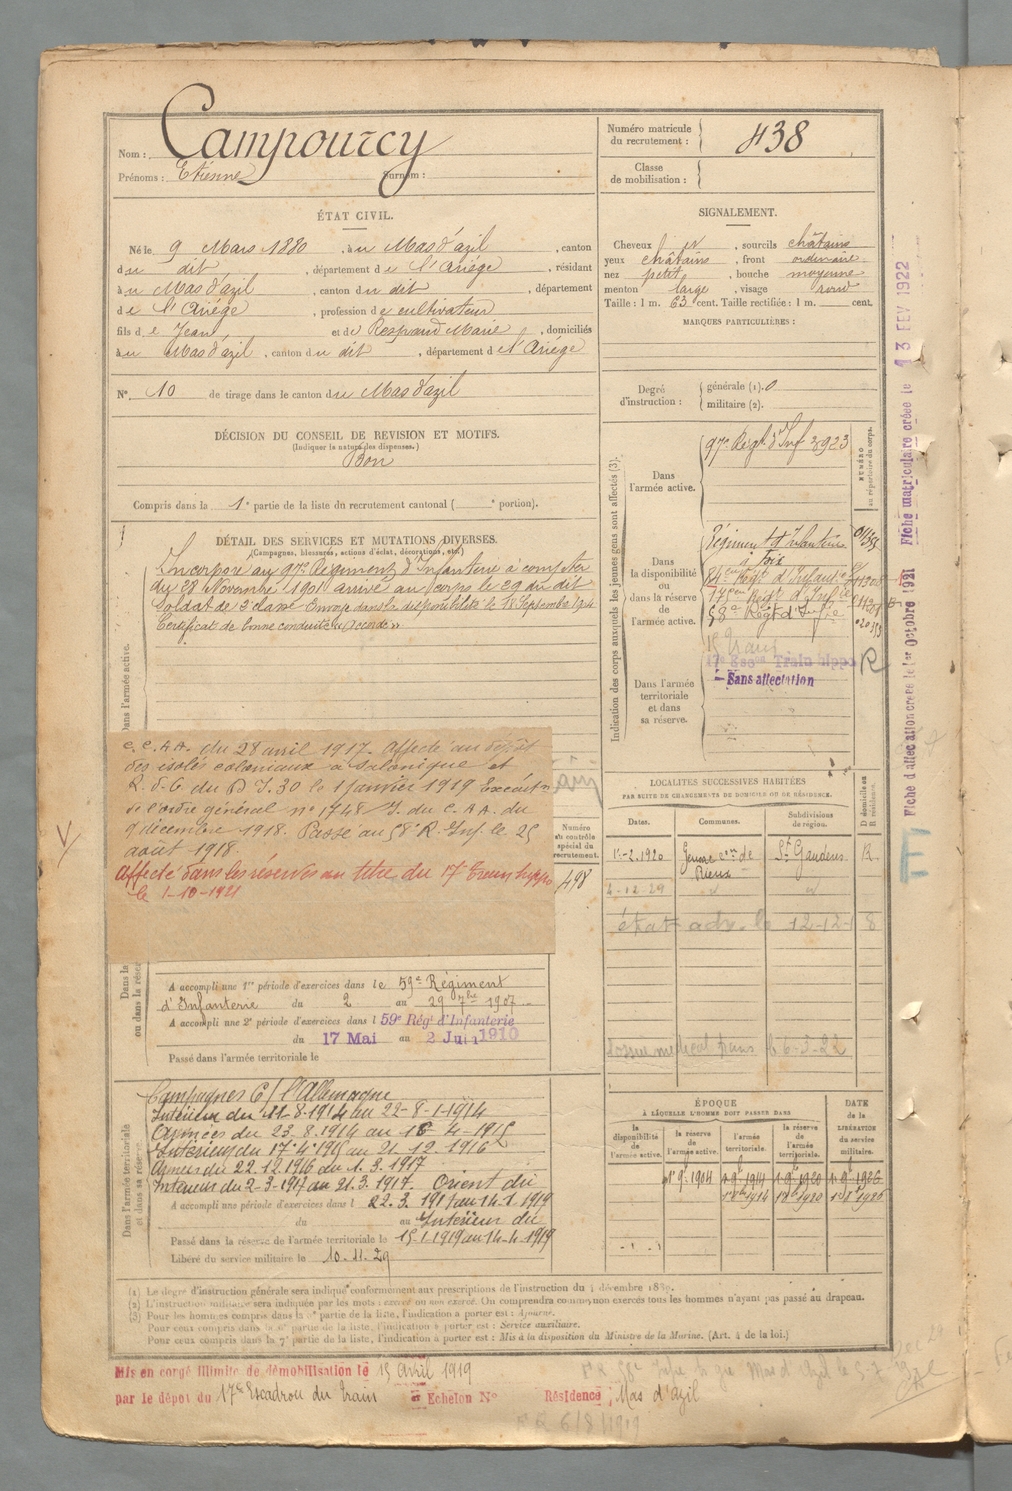 Nom : Campourcy
Prénoms : Etienne Surnom :
Numéro matricule du recrutement : 438
Classe de mobilisation :
ÉTAT CIVIL.
Né le 9 Mars 1880, à u Mas d'azil, canton
du dit, département de l'Ariége, résidant
à u Mas d'azil, canton du dit, département
de l'Ariége, profession de cultivateur
fils de Jean et de Respaud Marie, domiciliés
à u Mas d'azil, canton du dit, département de l'Ariége
N° 10 de tirage dans le canton du Mas d'azil
DÉCISION DU CONSEIL DE REVISION ET MOTIFS.
(Indiquer la nature des dispenses.)
Bon
Compris dans la 1e partie de la liste du recrutement cantonal ( e portion).
SIGNALEMENT.
Cheveux et, sourcils châtains
yeux châtains, front ordinaire
nez petit, bouche moyenne
menton large, visage rond
Taille : 1 m. 63 cent. Taille rectifiée : 1 m. cent.
MARQUES PARTICULIÈRES :
Degré d'instruction : générale (1). 0
militaire (2).
Indication des corps auxquels les jeunes gens sont affectés (3).
NUMÉRO au répertoire du corps.
Dans l'armée active.
97e Régt d'Inf 3923
Dans la disponibilité ou dans la réserve de l'armée active.
Régiment d'Infanterie
à Foix
58e Régt d'Infie
Dans l'armée territoriale et dans sa réserve.
17e Escon Train hippo R
Sans affectation
DÉTAIL DES SERVICES ET MUTATIONS DIVERSES.
(Campagnes, blessures, actions d'éclat, décorations, etc.)
Dans l'armée active.
Incorporé au 97e Régiment d'Infanterie à compter
du 28 Novembre 1901 arrivé au corps le 29 du dit
Soldat de 2e classe Envoyé dans la disponibilité le 18 Septembre 1904
Certificat de bonne conduite "Accordé"
C. C. A. A. du 28 avril 1917. Affecté au dépôt
des isolés coloniaux à Salonique et
R. d. G du D I. 30 le 1 janvier 1919 Exécutn
de l'ordre général n° 1748 I. du C. A A. du
9 décembre 1918. Passé au 58e R. Inf. le 25
août 1918.
Affecté dans les réserves au titre du 17e Train hippo
le 1-10-1921
Numéro au contrôle spécial du recrutement.
498
LOCALITÉS SUCCESSIVES HABITÉES
PAR SUITE DE CHANGEMENTS DE DOMICILE OU DE RÉSIDENCE.
Dates. Communes. Subdivisions de région. D domicile ou R résidence.
15-2-1920 con de Rieux St Gaudens R
Dans la ou dans la rése
A accompli une 1re période d'exercices dans le 59e Régiment
d'Infanterie du 2 au 29 7bre 1907
A accompli une 2e période d'exercices dans l 59e Rég. d'Infanterie
du 17 Mai au 2 Juin 1910
Passé dans l'armée territoriale le
Dans l'armée territoriale et dans sa réserve.
Campagnes C/ l'Allemagne
Intérieur du 11-8-1914 au 22-8-1914
Armées du 23.8.1914 au 16-4-1915
Intérieur du 17.4.1915 au 21.12.1916
Armées du 22.12.1916 au 1.3.1917
Intérieur du 2-3-1917 au 21.3.1917. Orient du
A accompli une période d'exercices dans l 22.3.1917 au 14.1.1919
du au Intérieur du
Passé dans la réserve de l'armée territoriale le 15.1.1919 au 14-4-1919
Libéré du service militaire le 10.11.29
ÉPOQUE
À LAQUELLE L'HOMME DOIT PASSER DANS
DATE de la LIBÉRATION du service militaire.
la disponibilité de l'armée active. la réserve de l'armée active. l'armée territoriale. la réserve de l'armée territoriale.
1er 9bre 1904 1er 9bre 1914 1er 9bre 1920 1er 9bre 1926
1er 8bre 1914 1er 8bre 1920 1er 8bre 1926
(1) Le degré d'instruction générale sera indiqué conformément aux prescriptions de l'instruction du 4 décembre 1889.
(2) L'instruction militaire sera indiquée par les mots : exercé ou non exercé. On comprendra comme non exercés tous les hommes n'ayant pas passé au drapeau.
(3) Pour les hommes compris dans la 5e partie de la liste, l'indication à porter est : Ajourné.
Pour ceux compris dans la 6e partie de la liste, l'indication à porter est : Service auxiliaire.
Pour ceux compris dans la 7e partie de la liste, l'indication à porter est : Mis à la disposition du Ministre de la Marine. (Art. 4 de la loi.)
Mis en congé illimité de démobilisation le 15 Avril 1919
par le dépot du 17e Escadron du Train Echelon N° Résidence : Mas d'azil
Fiche d'affectation créée le 1er Octobre 1921 Fiche matriculaire créée le 13 FEV 1922